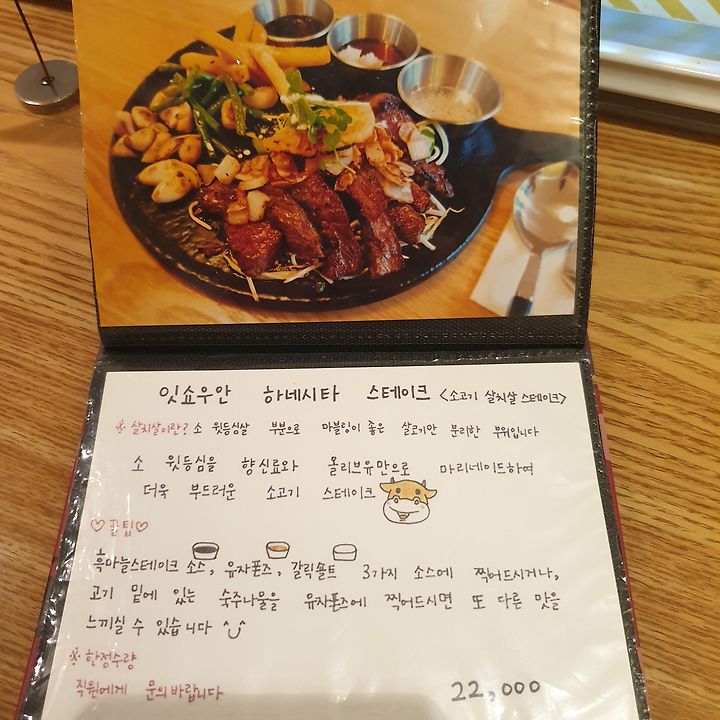 잇쇼우안 하네시타 스테이크 <소고기 살치살 스테이크>
※ 살치살이란? 소 윗등심살 부분으로 마블링이 좋은 살코기만 분리한 부위입니다
소 윗등심을 향신료와 올리브유만으로 마리네이드하여
더욱 부드러운 소고기 스테이크
♡꿀팁♡
흑마늘스테이크 소스, 유자폰즈, 갈릭솔트 3가지 소스에 찍어드시거나,
고기 밑에 있는 숙주나물을 유자폰즈에 찍어드시면 또 다른 맛을
느끼실 수 있습니다 ^_^
※ 한정수량
직원에게 문의바랍니다 22,000